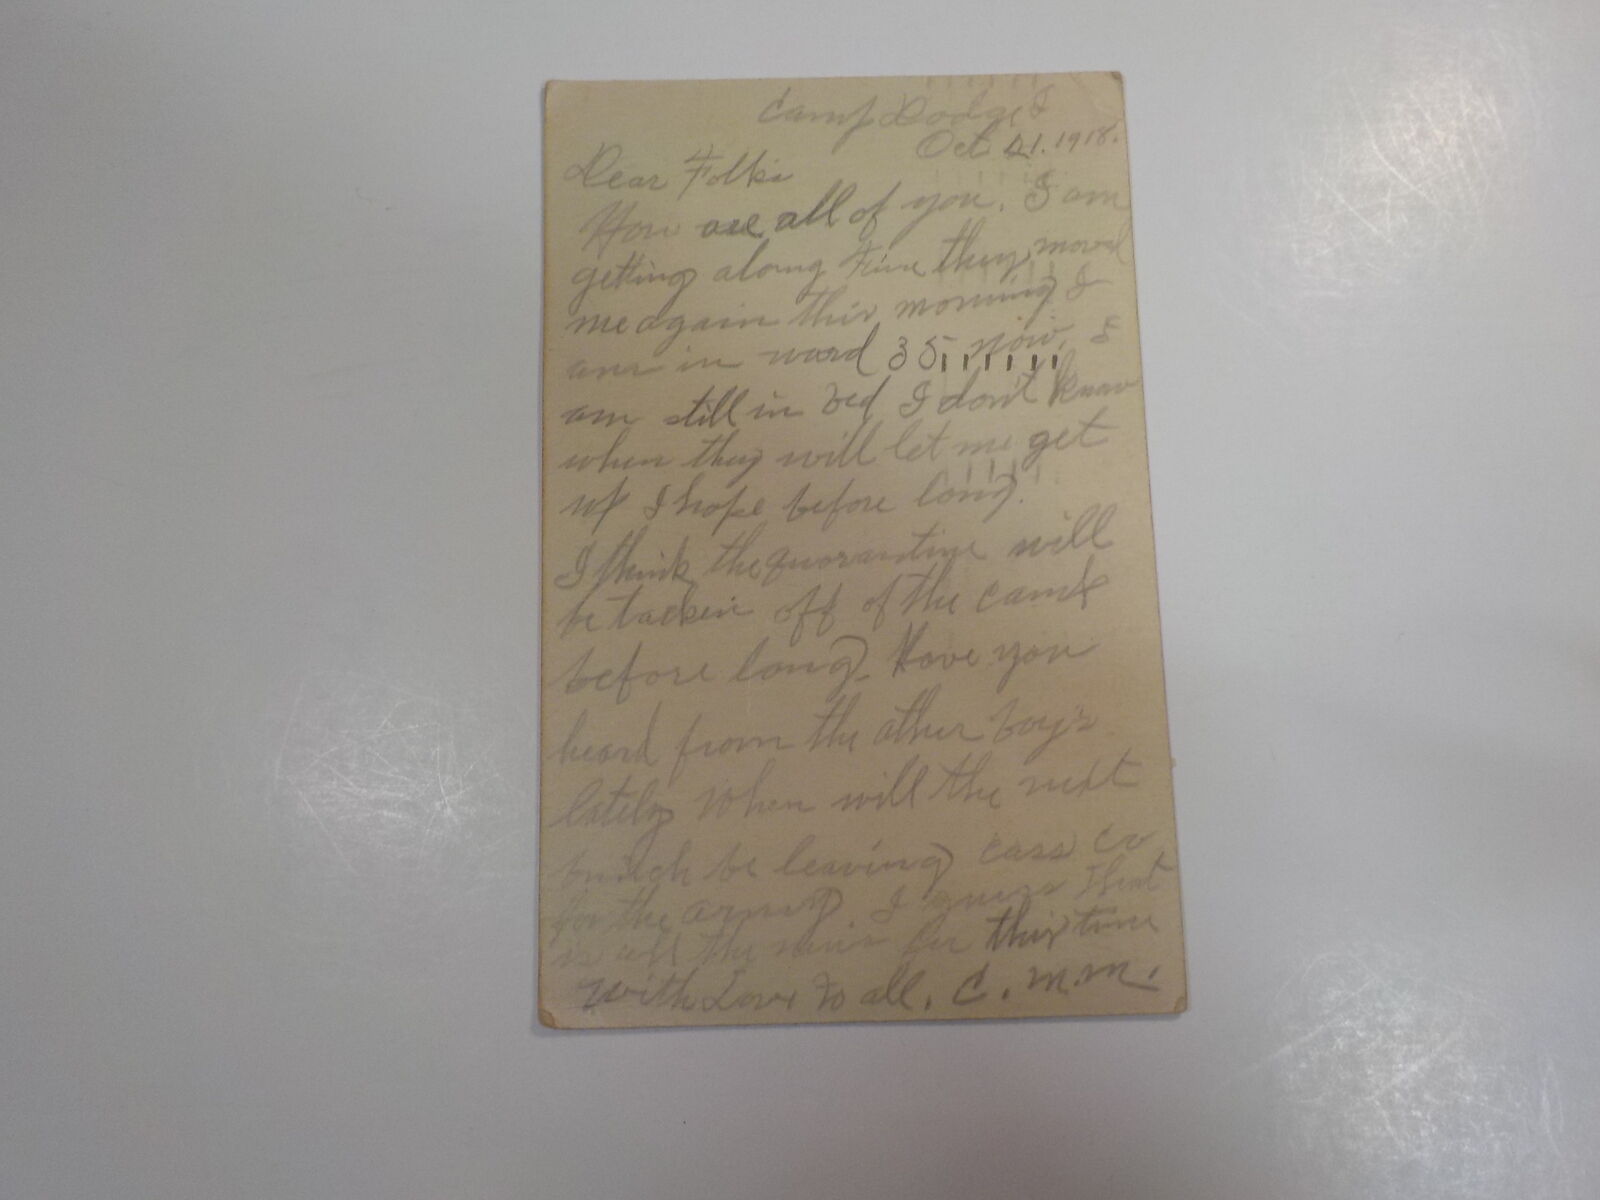 Camp Dodge I
Oct 21. 1918.
Dear Folks
How are all of you. I am
getting along Fine they moved
me again this morning I
am in ward 35 now. I
am still in bed I don't know
when they will let me get
up I hope before long.
I think the quorantine will
be tacken off of the camp
before long. Have you
heard from the other boys
lately When will the next
bunch be leaving Cass Co
for the army. I guess that
is all the news for this time
With Love to all. C. M. M.